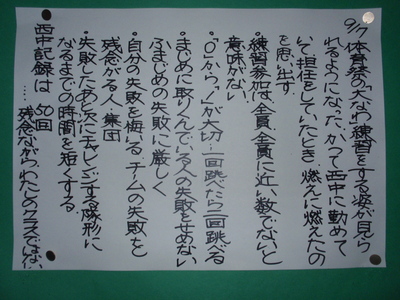 9/7 体育祭の大なわ練習をする姿が見ら
れるようになった。かつて西中に勤めて
いて担任をしていたとき、燃えに燃えたの
を思い出す
・練習参加は、全員、全員に近い数でないと
意味がない
・「0」から「1」が大切…一回跳べたら二回跳べる
・まじめに取りくんでいる人の失敗をせめない
ふまじめの失敗に厳しく
・自分の失敗を悔いる、チームの失敗を
残念がる人、集団
・失敗したあと次にチャレンジする隊形に
なるまでの時間を短くする
西中記録は 50回
…残念ながらわたしのクラスではない